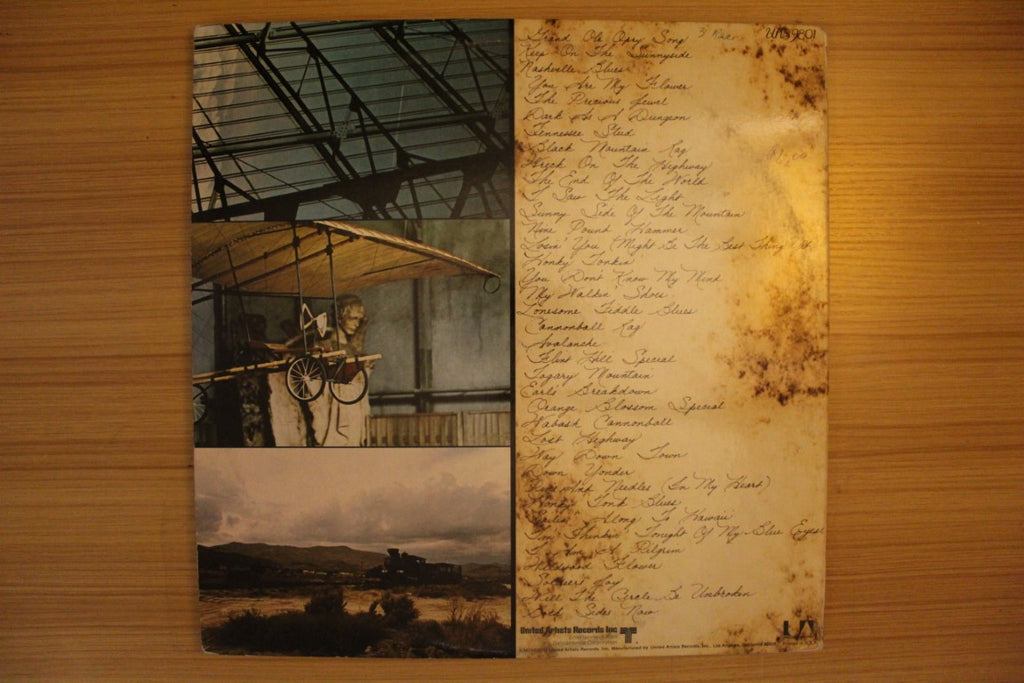 Grand Ole Opry Song
UAS 9801
Keep On The Sunnyside
Nashville Blues
You Are My Flower
The Precious Jewel
Dark As A Dungeon
Tennessee Stud
Black Mountain Rag
Wreck On The Highway
The End Of The World
I Saw The Light
Sunny Side Of The Mountain
Nine Pound Hammer
Losin' You (Might Be The Best Thing Yet
Honky Tonkin'
You Don't Know My Mind
My Walkin' Shoes
Lonesome Fiddle Blues
Cannonball Rag
Avalanche
Flint Hill Special
Togary Mountain
Earl's Breakdown
Orange Blossom Special
Wabash Cannonball
Lost Highway
Way Down Town
Down Yonder
Pins and Needles (In My Heart)
Honky Tonk Blues
Sailin' Along To Hawaii
I'm Thinkin' Tonight Of My Blue Eyes
I Am A Pilgrim
Wildwood Flower
Soldier's Joy
Will The Circle Be Unbroken
Both Sides Now
United Artists Records Inc
UA
United Artists Records, Inc. Manufactured by United Artists Records, Inc., Los Angeles, California